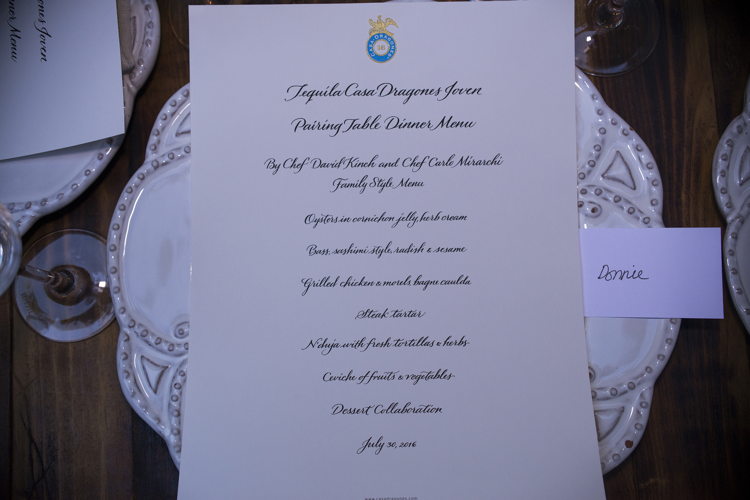 Joven
nner Menu
CASA DRAGONES
16
Tequila Casa Dragones Joven
Pairing Table Dinner Menu
By Chef David Kinch and Chef Carlo Mirarchi
Family Style Menu
Oysters in cornichon jelly, herb cream
Bass, sashimi style, radish & sesame
Grilled chicken & morels, bagne caulda
Steak tartar
N'duja with fresh tortillas & herbs
Ceviche of fruits & vegetables
Dessert Collaboration
July 30, 2016
Donnie